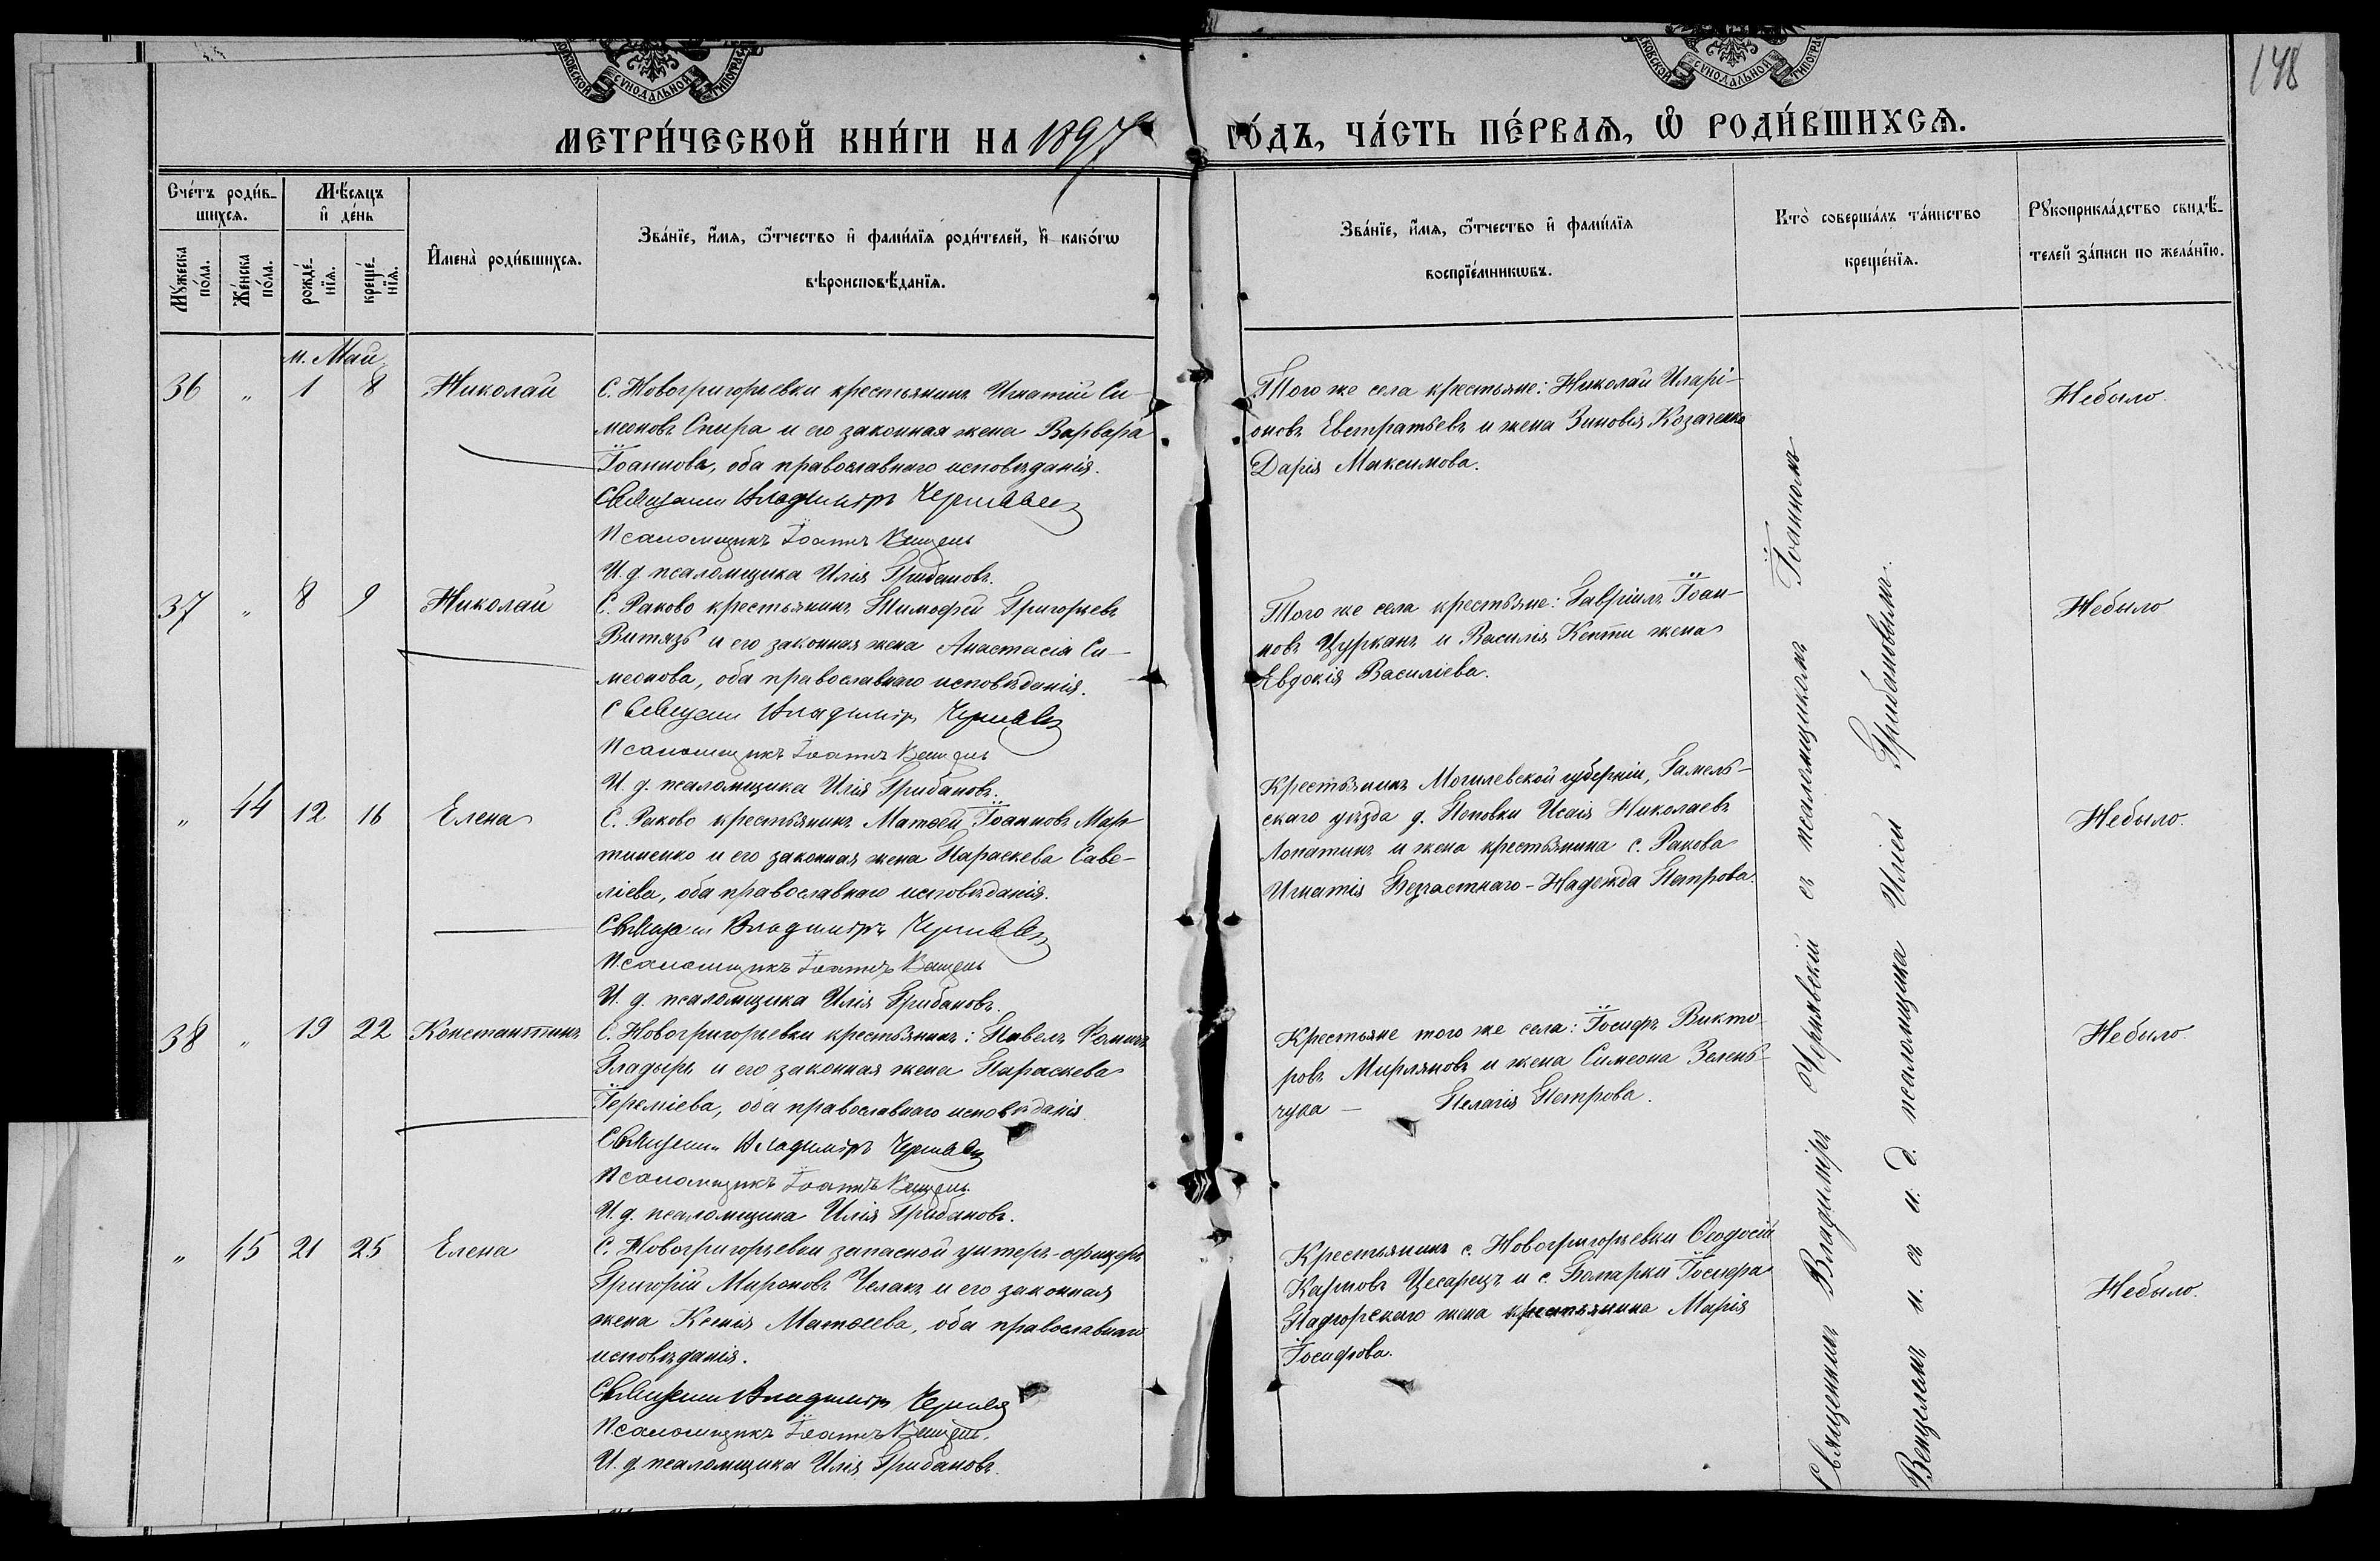 148
СѴНОДАЛЬНОЙ ТИПОГРАФ
МЕТРИ́ЧЕСКОЙ КНИ́ГИ НА 1897 ГО́ДЪ, ЧА́СТЬ ПЕ́РВАЯ, Ѡ РОДИ́ВШИХСЯ.
Сче́тъ роди́в-
шихся.
Мꙋ́жеска по́ла.
Же́нска по́ла.
Мѣ́сяцъ
и де́нь
рожде́нїя.
креще́нїя.
И҆мена̀ роди́вшихся.
Зва́нїе, и҆́мя, ѻ҆́тчество и҆ фами́лїя роди́телей, и҆ како́гѡ
вѣроисповѣ́данїя.
Зва́нїе, и҆́мя, ѻ҆́тчество и҆ фами́лїя
воспрїе́мникѡвъ.
Кто̀ соверша́лъ та́инство
креще́нїя.
Рꙋкоприкла́дство свидѣ́-
телей за́писи по жела́нїю.
м. Май
36 " 1 8 Николай
С. Новогригорьевки крестьянинъ Игнатій Си-
меоновъ Спира и его законная жена Варвара
Іоаннова, оба православнаго исповѣданія.
Священн Владиміръ Чернявскі
Псаломщикъ Іоаннъ Венцель
И. д. псаломщика Илія Грибановъ.
Того же села крестьяне: Николай Иларі-
оновъ Евстратьевъ и жена Зиновія Козаченко
Дарія Максимова.
Небыло.
37 " 8 9 Николай
С. Раково крестьянинъ Тимофей Григорьевъ
Витязь и его законная жена Анастасія Си-
меонова, оба православнаго исповѣданія.
Священн Владиміръ Чернявскі
Псаломщикъ Іоаннъ Венцель
И. д. псаломщика Илія Грибановъ.
Того же села крестьяне: Гавріилъ Іоан-
новъ Цурканъ и Василія Кепти жена
Евдокія Василіева.
Небыло
" 44 12 16 Елена
С. Раково крестьянинъ Матѳей Іоанновъ Мар-
тиненко и его законная жена Параскева Саве-
ліева, оба православнаго исповѣданія.
Священн Владиміръ Чернявскі
Псаломщикъ Іоаннъ Венцель
И. д. псаломщика Илія Грибановъ.
Крестьянинъ Могилевской губерніи, Гомель-
скаго уѣзда д. Поповки Исаія Николаевъ
Лопатинъ и жена крестьянина с. Ракова
Игнатія Безчастнаго - Надежда Петрова.
Небыло.
38 " 19 22 Константинъ
С. Новогригорьевки крестьянинъ: Павелъ Ѳоминъ
Гладырь и его законная жена Параскева
Іереміева, оба православнаго исповѣданія
Священн Владиміръ Чернявскі
Псаломщикъ Іоаннъ Венцель.
И. д. псаломщика Илія Грибановъ.
Крестьяне того же села: Іосифъ Викто-
ровъ Мирляновъ и жена Симеона Зелень-
чука - Пелагія Петрова.
Небыло.
" 45 21 25 Елена
С. Новогригорьевки запасной унтеръ-офицеръ
Григорій Мироновъ Челакъ и его законная
жена Ксенія Матѳеева, оба православнаго
исповѣданія.
Священн Владиміръ Чернявскі
Псаломщикъ Іоаннъ Венцель.
И. д. псаломщика Илія Грибановъ.
Крестьянинъ с. Новогригорьевки Ѳеодосій
Карповъ Цесарецъ и с. Іосифа
жена крестьянина Марія
Іосифова.
Небыло.
Священникъ Владиміръ Чернявскій съ псаломщикомъ Іоанномъ
Венцелемъ и съ и. д. псаломщика Иліей Грибановымъ.